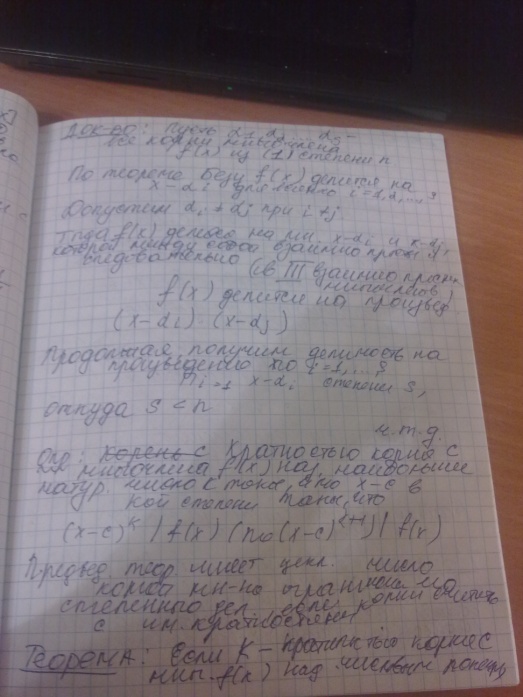 Док-во: Пусть α1, α2, ... αs –
все корни многочлена
f(x) из (1) степени n
По теореме Безу f(x) делится на
x-αi для всякого i=1,2,...,s
Допустим αi ≠ αj при i≠j
Тогда f(x) делится на мн. x-αi и x-αj,
которые между собой взаимно просты
следовательно
(св III взаимно прост.
многочленов)
f(x) делится на произвед
(x-αi)·(x-αj)
Продолжая, получим делимость на
произведение по i=1,...,s
x-αi степени s,
откуда s < n
ч.т.д.
Опр: Корень с Кратностью корня с
для многочлена f(x) наз. наибольшее
натур. число k такое, что x-c в
кой степени такая, что
(x-c)^k | f(x) (но (x-c)^(k+1)) | f(x)
Предыд. теор. имеет число
корней мн-на
степенью корни считать
с их кратностями
Теорема: Если K – кратностью корня с
мн. f(x) над числовым полем